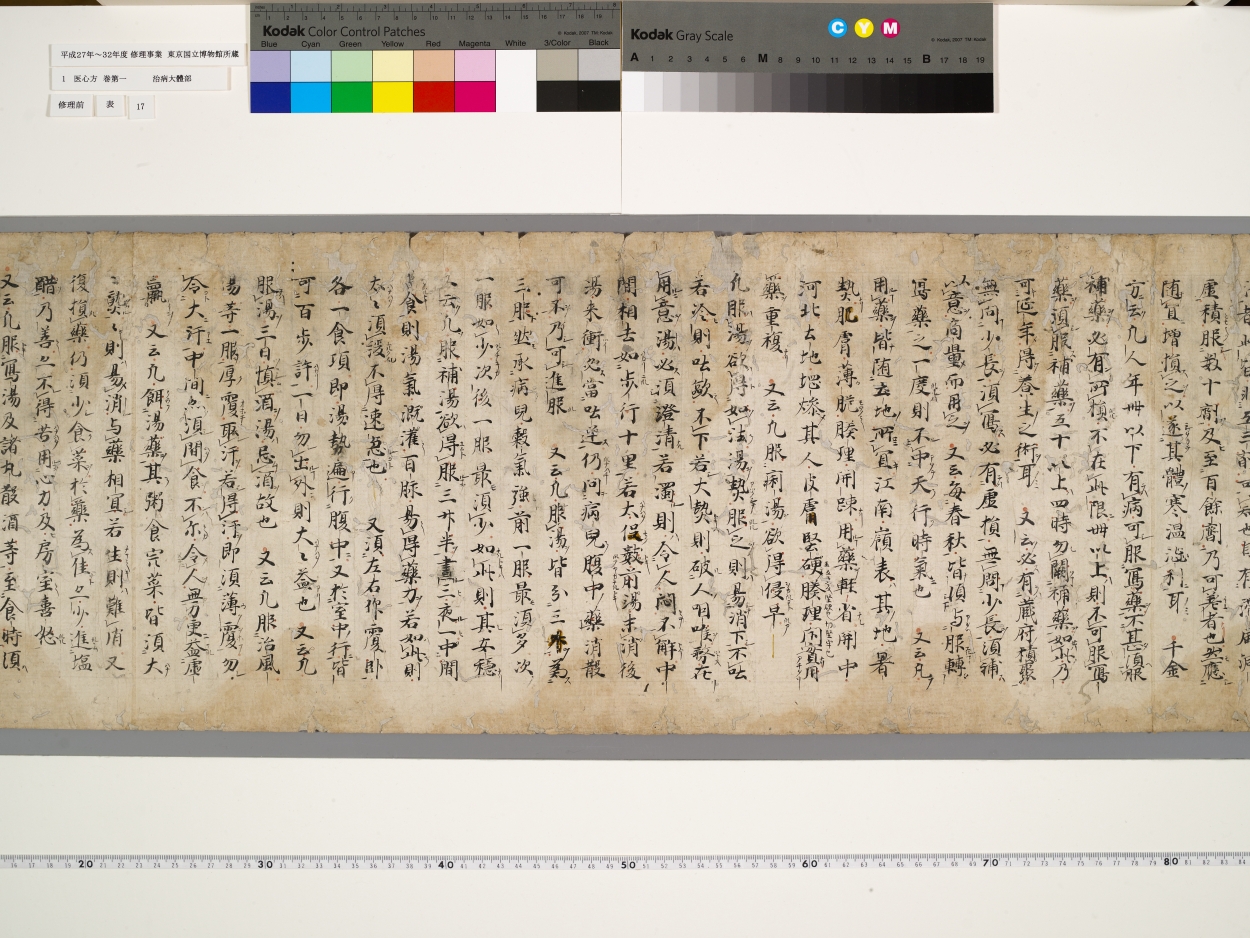 平成27年～32年度 修理事業 東京国立博物館所蔵
1 医心方 巻第一 治病大體部
修理前 表 17
Kodak Color Control Patches
Blue Cyan Green Yellow Red Magenta White 3/Color Black
Kodak Gray Scale
C Y M
A 1 2 3 4 5 6 M 8 9 10 11 12 13 14 15 B 17 18 19
虚積服数十劑及至百餘劑乃可愈者也然應
随宜増損之以遂其體寒温澁利耳 千金
方云凡人年卌以下有病可服寫藥不甚須服
補藥必有所損不在此限卌以上則不可服寫
藥須服補藥五十以上四時勿闕補藥如此乃
可延年得養生之術耳 又云必有藏府積聚
無問少長須寫必有虚損無問少長須補
以意商量而用之 又云毎春秋皆須与服轉
寫藥之一度則不中天行時氣也 又云凡
用藥皆随土地所宜江南嶺表其地暑
熱肌膚薄脆腠理開踈用藥軽省開中
河北土地燥其人皮膚堅硬腠理
藥重複 又云凡服痢湯欲得侵早
凡服湯欲得如法湯熱服之則易消下不吐
若冷則吐歐不下若大熱則破人咽喉務在
用意湯必須澄清若濁則令人悶不解中
間相去如歩行十里若太促數前湯未消後
湯来衝必當吐逆仍問病兒腹中藥消散
可不乃可進服 又云凡服湯皆分三為
三服然承病兒穀氣強前一服最須多次
一服如少次後一服最須少如此則其安穩
又云凡服補湯欲得服三升半晝三夜一中間
食則湯氣溉灌百脉易得藥力若如此則
太須緩不得速急也 又須左右作覆卧
各一食頃即湯勢遍行腹中又於室中行皆
可百歩許一日勿出外則大々益也 又云凡
服湯三日慎酒湯忌酒故也 又云凡服治風
湯等一服厚覆取汗若得汗即須薄覆勿
令大汗中間亦須間食不尓令人無力更益虚
羸 又云凡餌湯藥其粥食完菜皆須大
々熟々則易消与藥相宜若生則難消又
復損藥仍須少食菜於藥為佳亦少進塩
醋乃善亦不得苦用心力及房室喜怒
又云凡服寫湯及諸丸散酒等至食時須